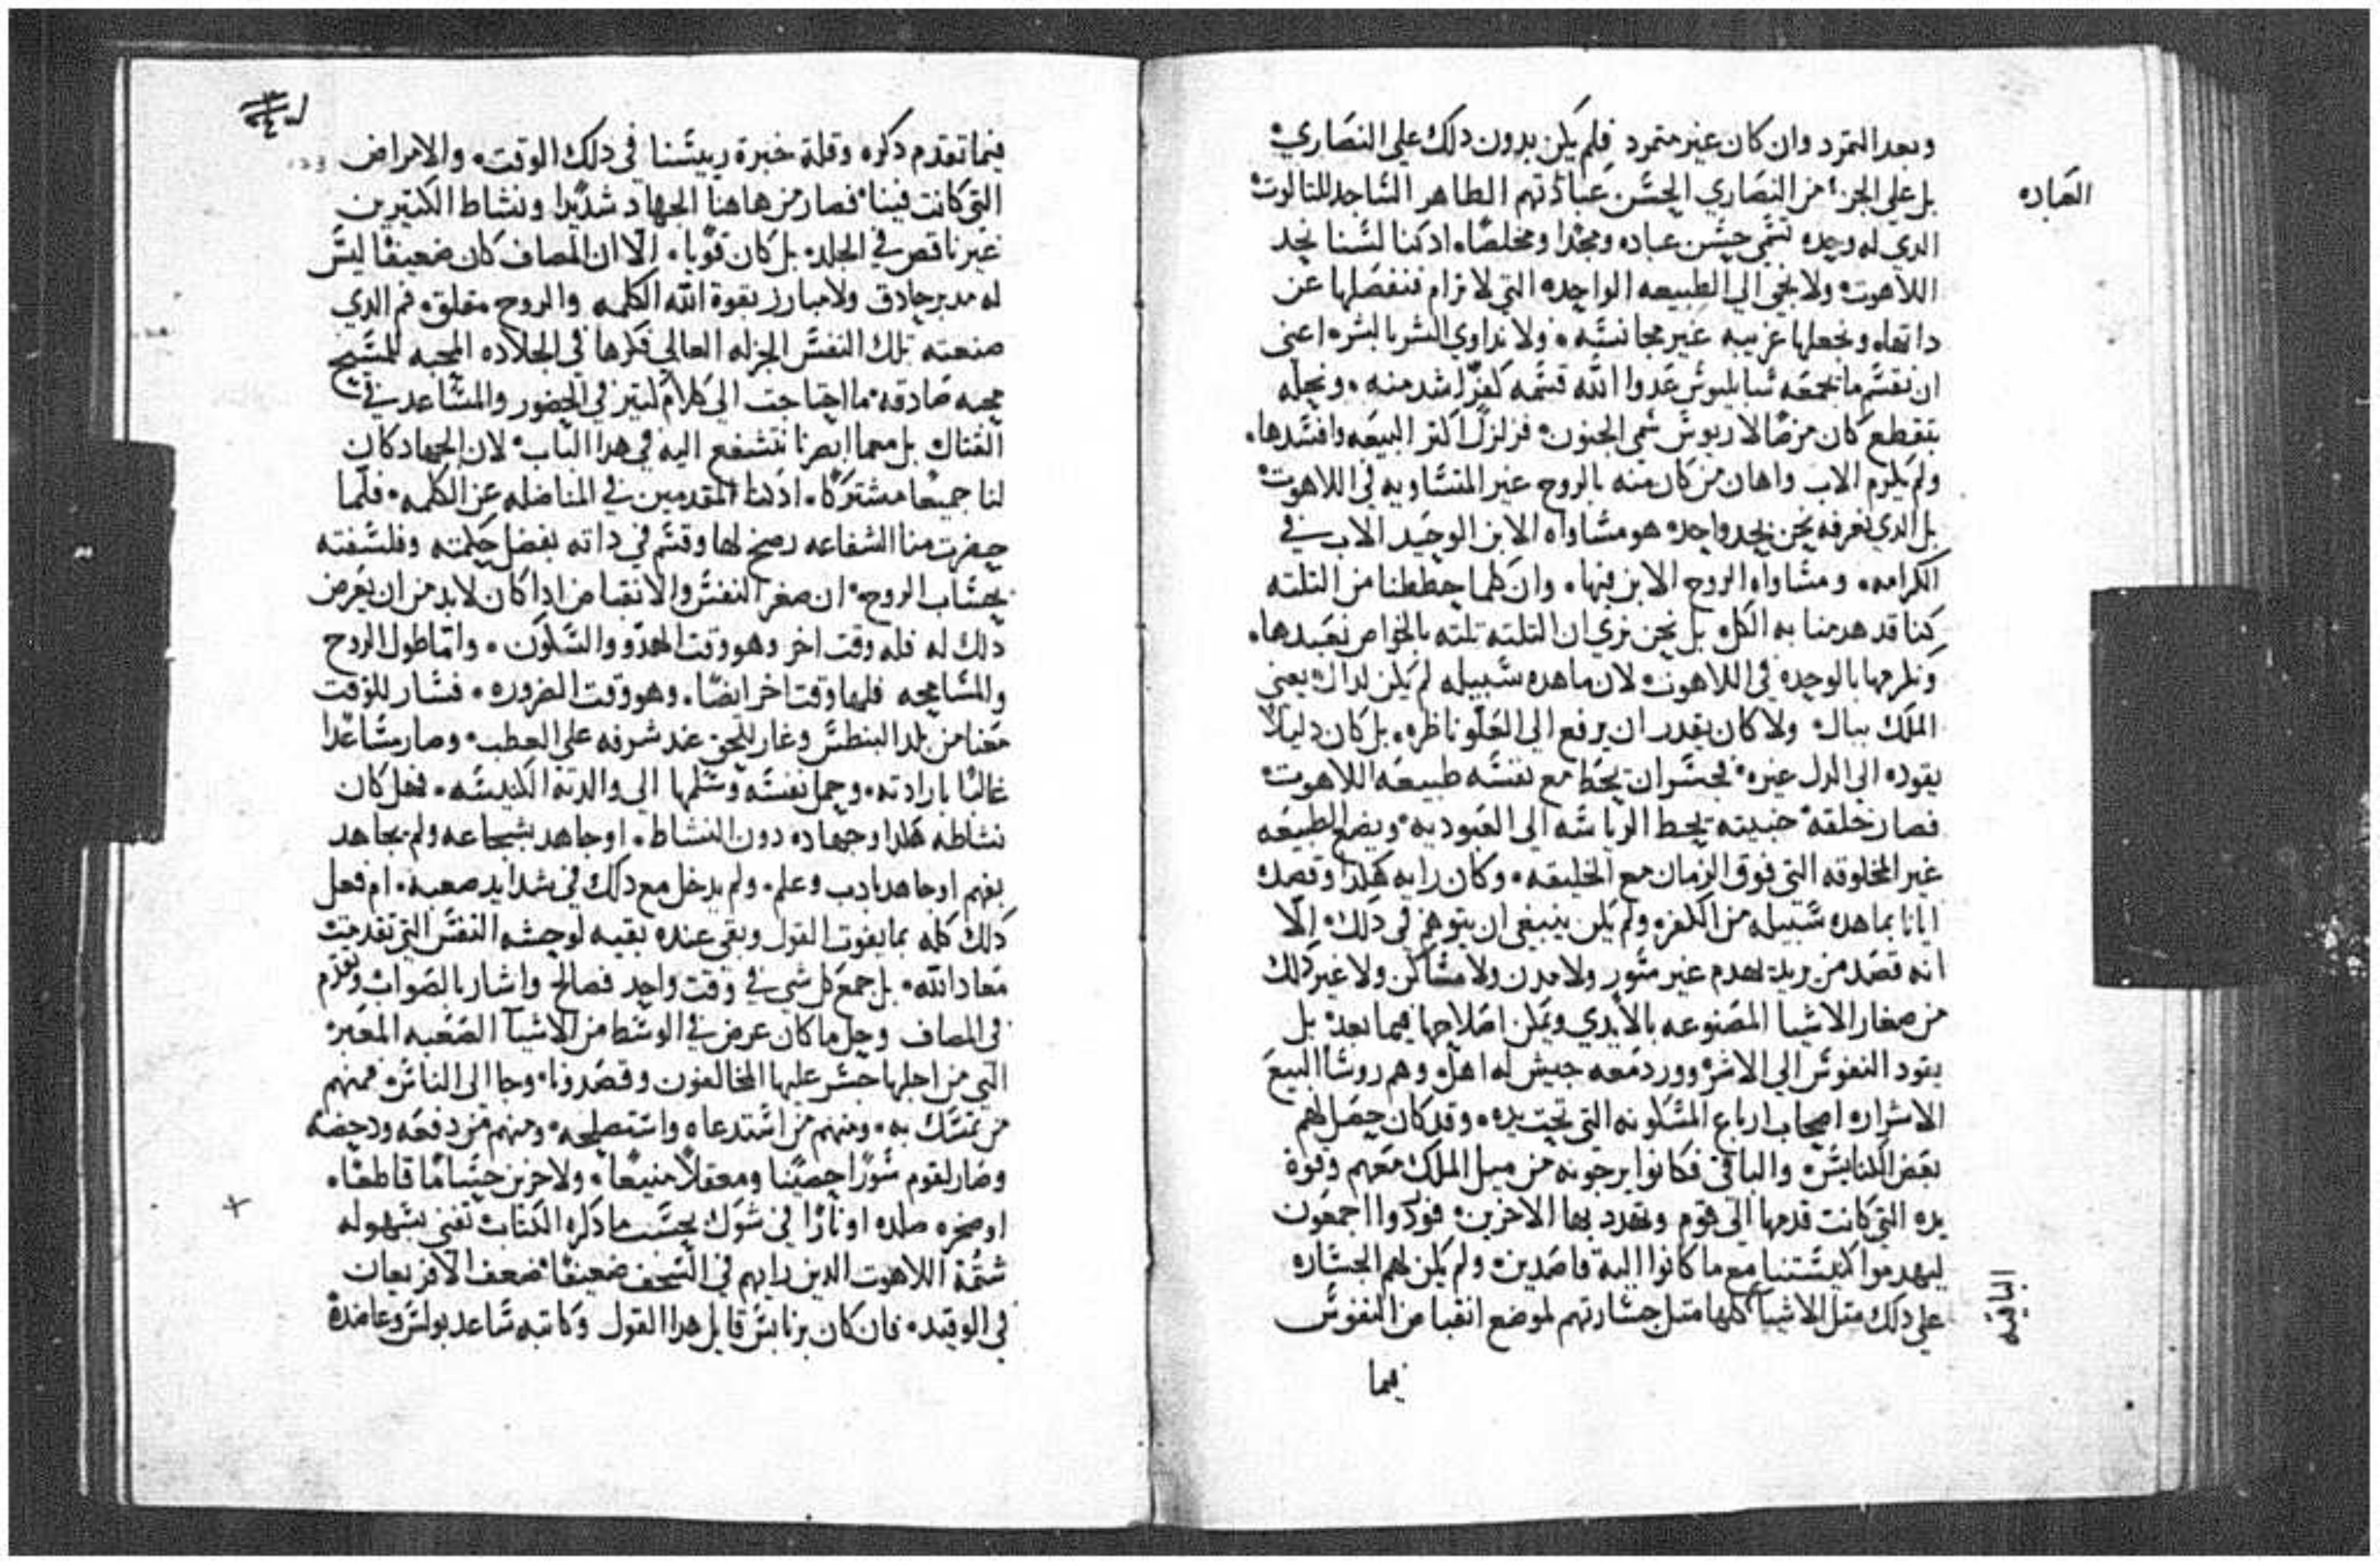 وبعد التمرد وان كان غير متمرد فلم يكن بدون دلك على النصاري
بل على الجزء من النصاري الحسن عبادتهم الطاهر الساجد للتالوت
العباده
الدي له وحده نسمي حسن عباده ومجدا ومخلصا اد كنا لسنا نجد
اللاهوت ولا نجي الي الطبيعه الواحده التي لا ترام فنفصلها عن
داتها ونجعلها غريبه غير مجانسه ولا نداوي الشر بالشر اعني
ان نقسم ما جمعه سباليوس عدوا الله قسمه كفرا اشد منه ونحله
بتقطع كان مرضا لاريوس سمي الجنون فزلزل اكتر البيعه وافسدها
ولم يكرم الاب واهان من كان منه بالروح غير المتساويه في اللاهوت
بل الدي نعرفه نحن مجد واحد هو مساواه الابن الوحيد الاب في
الكرامه ومساواه الروح الابن فيها وان كلما حططنا من التلته
كنا قد هدمنا به الكل بل نحن نري ان التلته تلته بالخواص نعبدها
ونكرمها بالوحده في اللاهوت لان ما هده سبيله لم يكن لداك يعني
الملك ببال ولا كان يقدر ان يرفع الي العلو ناظره بل كان دليلا
يقوده الي الدل غيره فجسر ان يحط مع نفسه طبيعه اللاهوت
فصار خلقه خبيته يحط الرياسه الي العبوديه ويضع الطبيعه
غير المخلوقه التي فوق الزمان مع الخليقه وكان رايه هكدا وقصد
ايانا بما هده سبيله من الكفر ولم يكن ينبغي ان يتوهم في دلك الا
انه قصد من بربه لهدم غير سور ولا مدن ولا مساكن ولا غير دلك
من صغار الاشيا المصنوعه بالايدي ويمكن اصلاحها فيما بعد بل
يقود النفوس الي الاسر وورد معه جيش له اهل وهم روسا البيع
الاشرار اصحاب ارباع المسكونه التي تحت يده وقد كان حصل لهم
بعض الكنايس والباقي فكانوا يرجونه من ميل الملك معهم وقوة
يده التي كانت قدمها الي قوم وتهدد بها الاخرين فوردوا اجمعون
ليهدموا كنيستنا مع ما كانوا اليه قاصدين ولم يكن لهم الجساره
الباقيه
على دلك متل الاشيا كلها متل جسارتهم لموضع انقباض النفوس
فيما
فيما تقدم دكره وقلة خبرة رييسنا في دلك الوقت والامراض
التي كانت فينا فصار من هاهنا الجهاد شديدا ونشاط الكتيرين
غير ناقص في الجلد بل كان قويا الا ان المصاف كان ضعيفا ليس
له مدبر حادق ولا مبارز بقوة الله الكلمه والروح متعلق فم الدي
صنعته تلك النفس الجزله العالي فكرها في الجلاده المحبه للمسيح
محبه صادقه ما احتاجت الى كلام كتير في الحضور والمساعد في
القتال بل معما ابصرنا نتشفع اليه في هدا الباب لان الجهاد كان
لنا جميعا مشتركا اد كنا المقدمين في المناضله عن الكلمه فلما
حضرت منا الشفاعه رضخ لها وقسم في داته بفضل حكمته وفلسفته
بحساب الروح ان صغر النفس والانقباض ادا كان لابد من ان يعرض
دلك له فله وقت اخر وهو وقت الهدو والسكون واما طول الروح
والمسامحه فلها وقت اخر ايضا وهو وقت الضروره فسار للوقت
معنا من بلد البنطس وغار للحق عند شرفه على العطب وصار مساعدا
غالبا بارادته وحمل نفسه وسلمها الي والدته الكنيسه فهل كان
نشاطه هكدا وجهاده دون النشاط او جاهد بشجاعه ولم يجاهد
بفهم او جاهد بادب وعلم ولم يدخل مع دلك في شدايد صعبه ام فعل
دلك كله بما يفوت القول وبقي عنده بقيه لوحشه النفس التي تقدمت
معاد الله بل جمع كل شي في وقت واحد فصالح واشار بالصواب وتقدم
في المصاف وحل ما كان عرض في الوسط من الاشيا الصعبه المعبره
التي من اجلها جسر عليها المخالفون وقصدونا وجا الى الناس فمنهم
من تمسك به ومنهم من استدعاه واستصلحه ومنهم من دفعه ودحضه
وصار لقوم سورا حصينا ومعقلا منيعا ولاخرين حساما قاطعا
او صخره صلده او نارا في شوك بحسب ما دكره الكتاب تفني بسهوله
شتمة اللاهوت الدين رايهم في السخف ضعيفا ضعف
في الوقيد فان كان برنابس قايل هدا القول وكاتبه ساعد بولس وعاضده